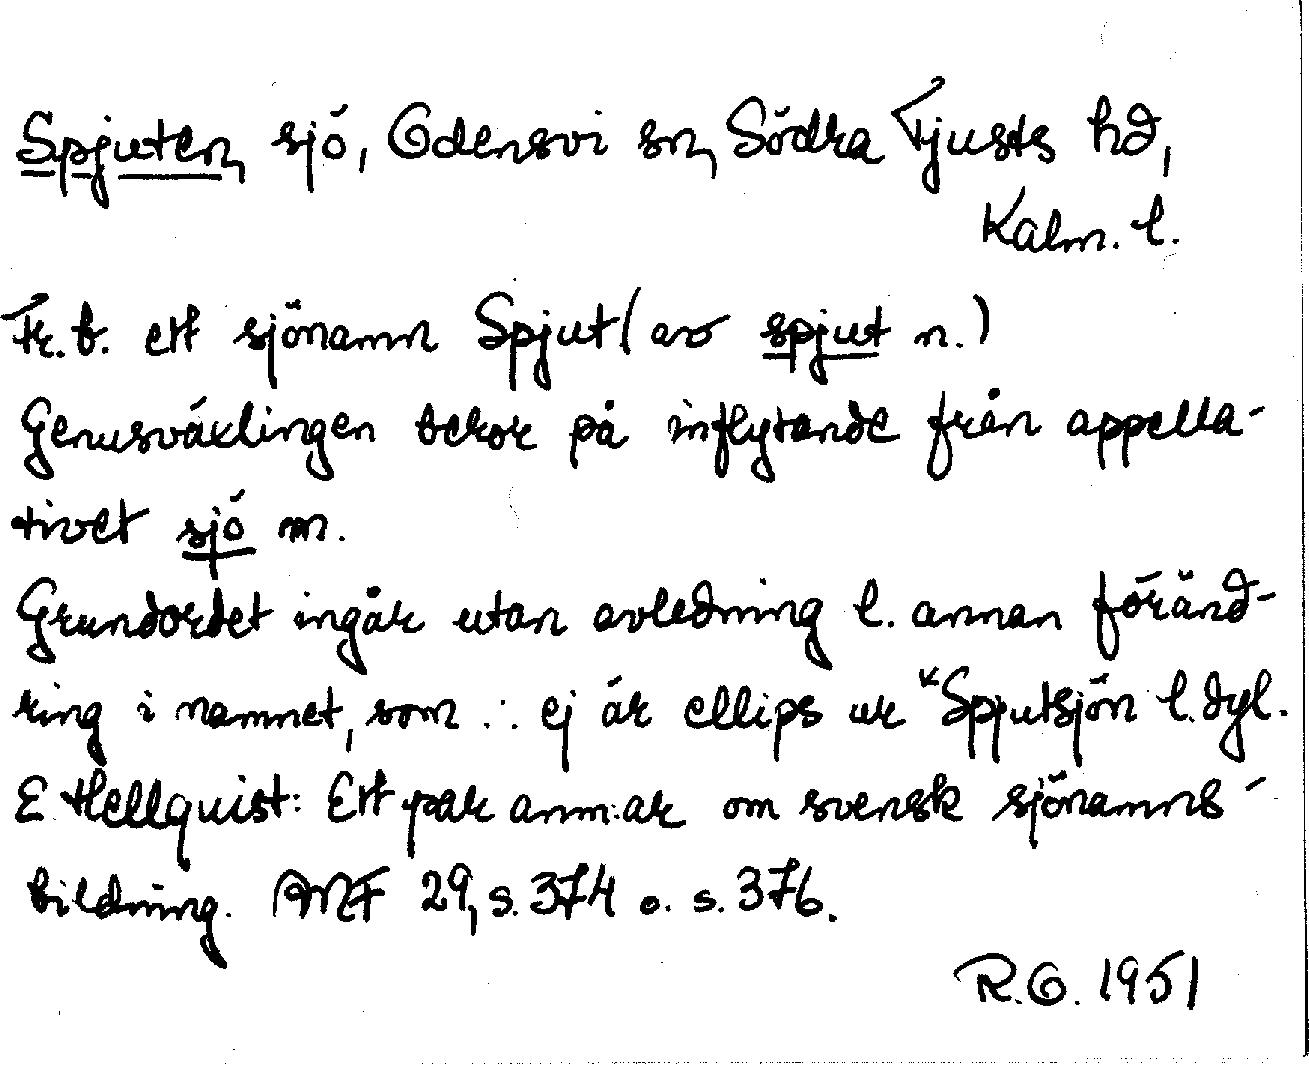 Spjuten, sjö, Odensvi sn, Södra Tjusts hd,
Kalm. l.
Fr. b. ett sjönamn Spjut (av spjut n.)
Genusväxlingen beror på inflytande från appella-
tivet sjö m.
Grundordet ingår utan avledning l. annan föränd-
ring i namnet, som ∴ ej är ellips ur *Spjutsjön l. dyl.
E Hellquist: Ett par anm:ar om svensk sjönamns-
bildning. ANF 29, s. 374 o. s. 376.
R.O. 1951